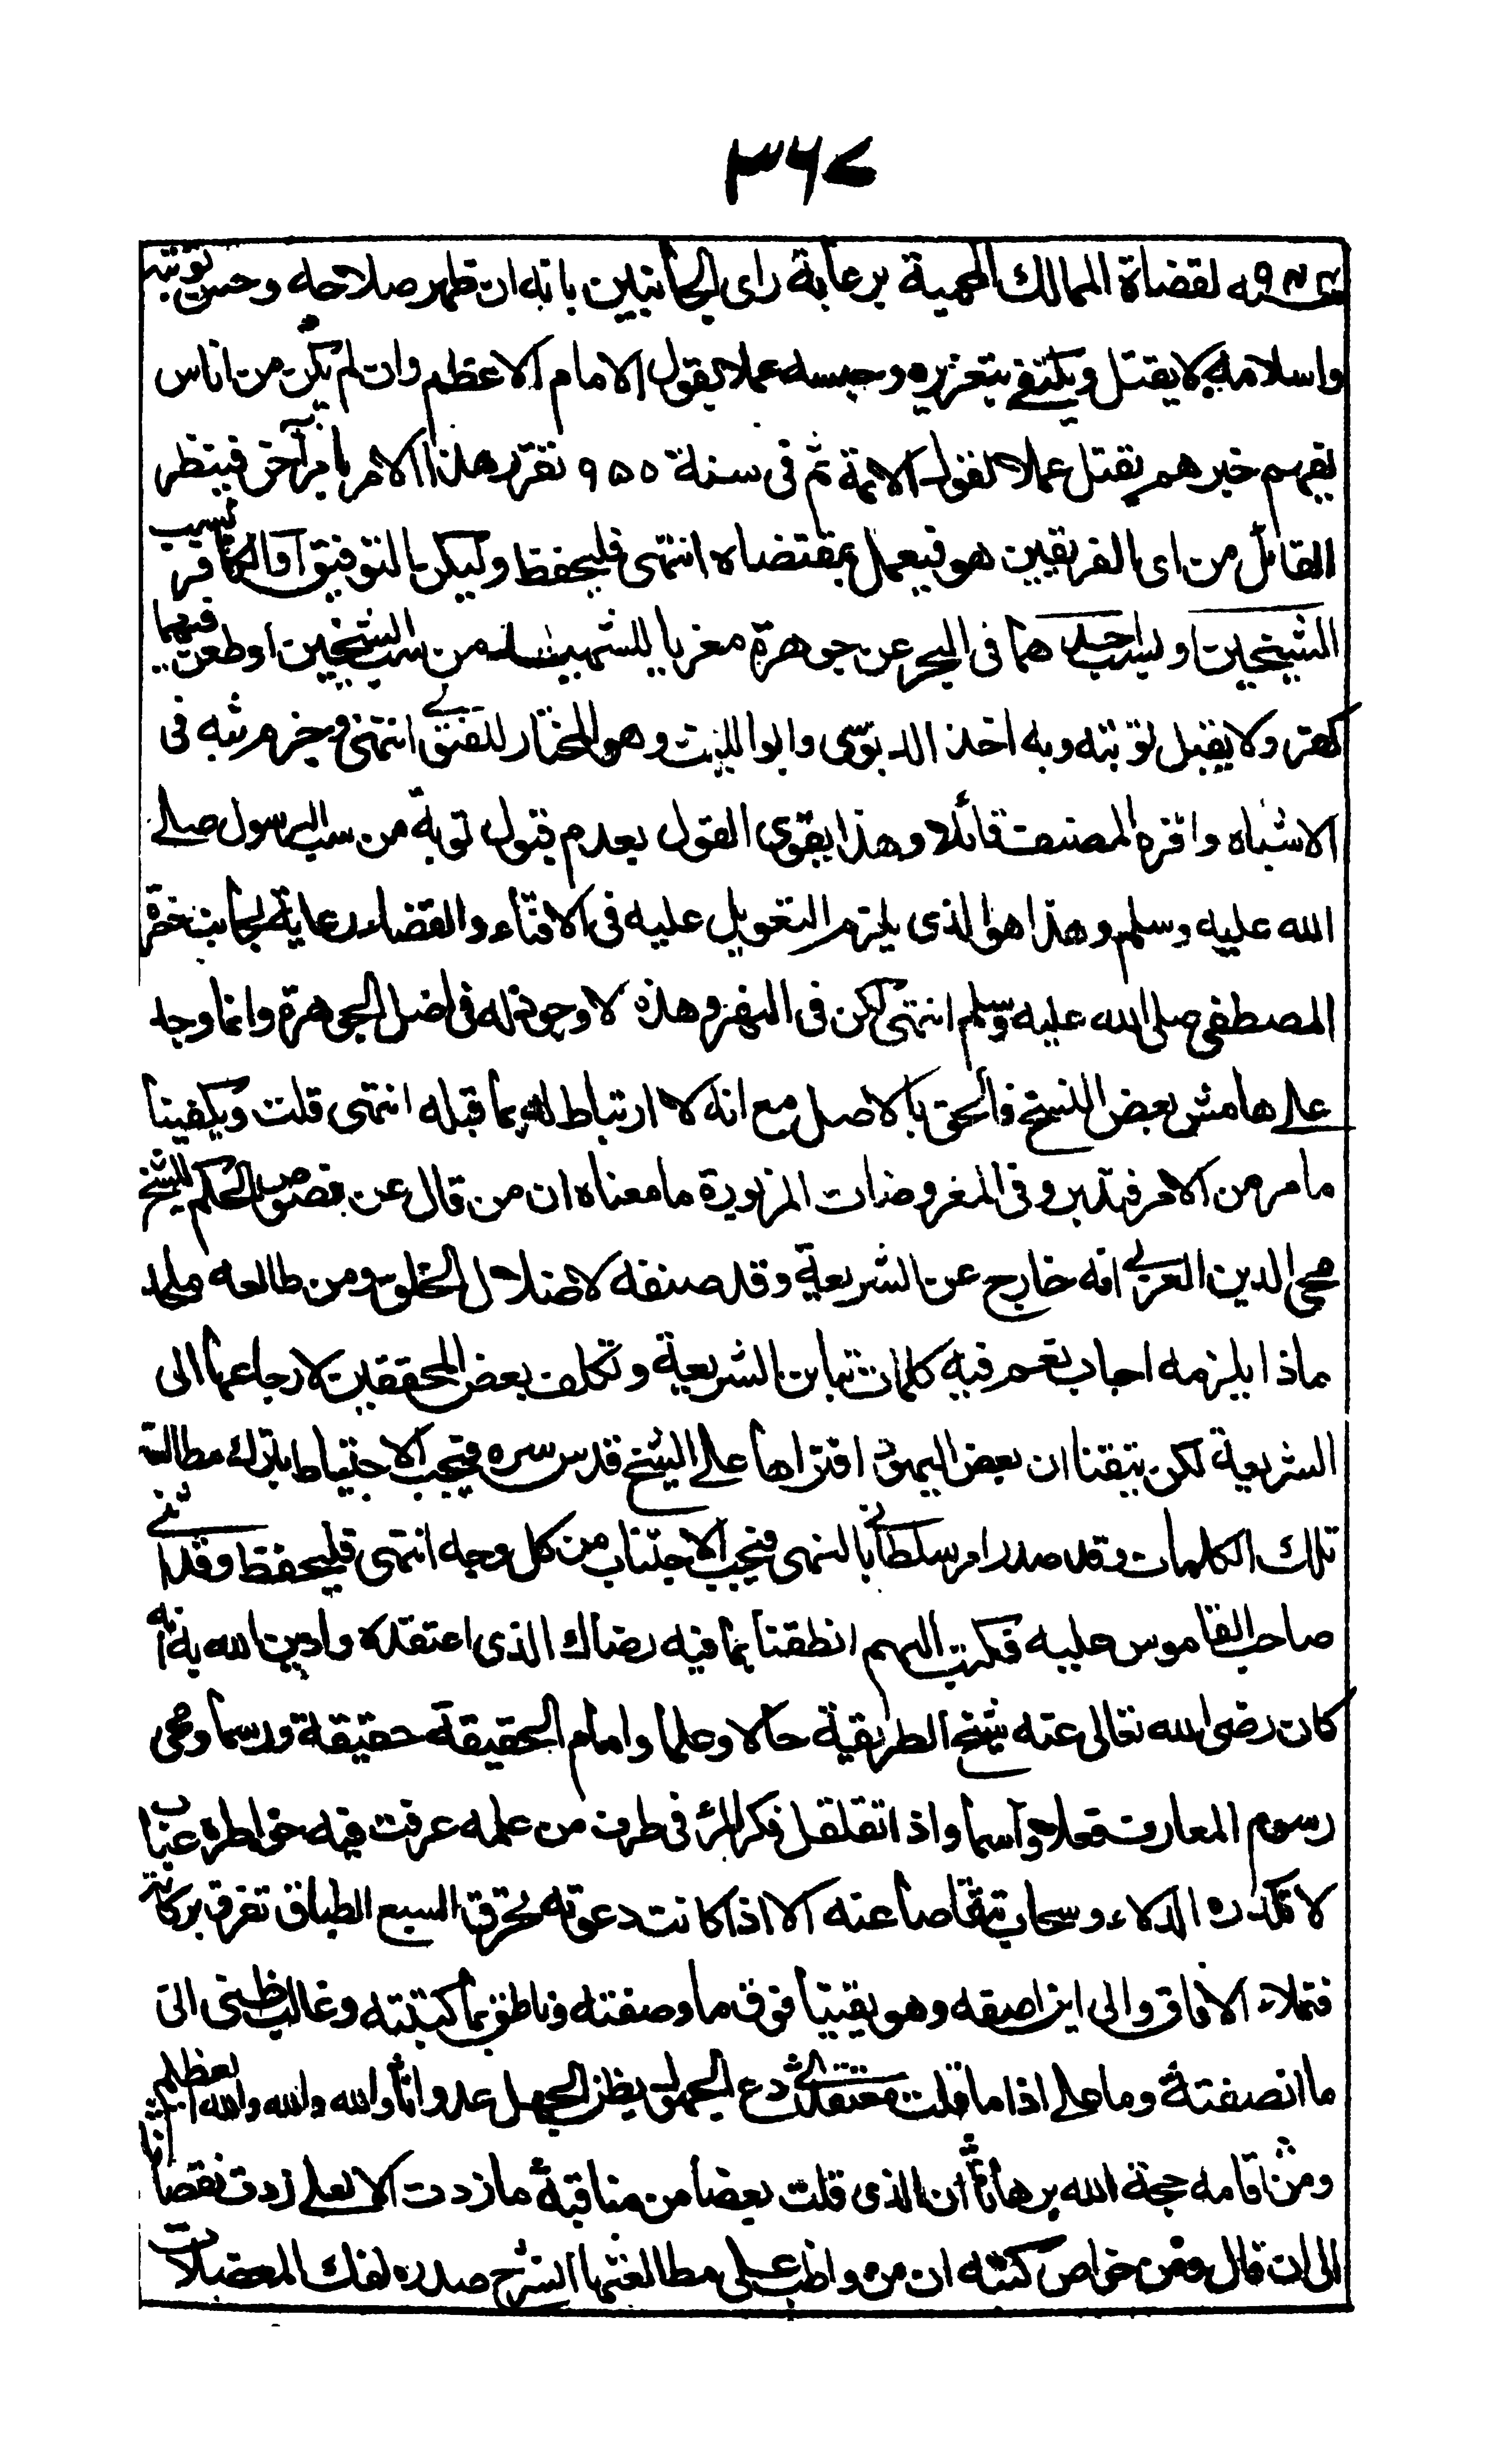 ٣٦٧
سنة ٩٤٤ لقضاة الممالك المحمية برعاية راى الجانبين بانه ان ظهر صلاحه وحسن توبته
واسلامه لا يقتل ويكتفى بتعزيره وحبسه عملا بقول الامام الاعظم وان لم يكن من اناس
يفهم خيرهم يقتل عملا لقول الائمة ثم فى سنة ٩٥٥ تقرر هذا الامر بامر آخر فينظر
القائل من اى الفريقين هو فيعمل بمقتضاه انتهى فليحفظ وليكن بالتوفيق او الكافر بسب
الشيخين او بسب احدهما فى البحر عن جوهرة معزيا للشهيد من سب الشيخين او طعن فيهما
كفر ولا يقبل توبته وبه اخذ الدبوسى وابو الليث وهو المختار للفتوى انتهى وجزم به فى
الاشباه واقره المصنف قائلا وهذا يقوى القول بعدم قبول توبة من سب الرسول صلى
الله عليه وسلم وهذا هو الذى يلزم التعويل عليه فى الافتاء والقضاء رعاية لجانب حضرة
المصطفى صلى الله عليه وسلم انتهى لكن فى النهر وهذه لا وجود له فى اصل الجوهرة وانما وجد
على هامش بعض النسخ فالحق بالاصل مع انه لا ارتباط له بما قبله انتهى قلت ويكفينا
ما مر من الامر فتدبر وفى المعروضات المزبورة ما معناه ان من قال عن فصوص الحكم للشيخ
محى الدين العربى انه خارج عن الشريعة وقد صنفه لاضلال الخلق ومن طالعه ملحد
ماذا يلزمه اجاب نعم فيه كلمات تباين الشريعة وتكلف بعض المحققين لارجاعها الى
الشريعة لكن تيقنا ان بعض اليهود افتراها على الشيخ قدس سره فيجب الاحتياط بترك مطالعة
تلك الكلمات وقد صدر امر سلطانى بالنهى فيجب الاجتناب من كل وجه انتهى فليحفظ وقد اثنى
صاحب القاموس عليه فكتب اللهم انطقنا بما فيه رضاك الذى اعتقده وادين الله به انه
كان رضى الله تعالى عنه شيخ الطريقة حالا وعلما وامام الحقيقة حقيقة ورسما ومحى
رسوم المعارف فعلا واسما واذا تقلقل فكر المرء فى طرف من علمه غرقت فيه خواطره عباب
لا تكدره الدلاء وسحاب تتقاصا عنه الا اذا كانت دعوته تخرق السبع الطباق تفرق بركاته
فتملاء الافاق وانى اصفه وهو يقينا فوق ما وصفته وناطق بما كتبته وغالب ظنى انى
ما انصفته وما على اذا ما قلت معتقدى دع الجهول يظن الجهل عدوانا والله والله والله العظيم
ومن اقامه حجة الله برهانا ان الذى قلت بعضا من مناقبه ما زدت الا لعلى زدت نقصانا
الى ان قال ومن خواص كتبه ان من واظب على مطالعتها انشرح صدره لفك المعضلات